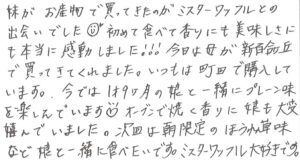 妹が お産物で買ってきたのがミスターワッフルとの
出会いでした 初めて食べて香りにも美味しさに
も本当に感動しました!!! 今日は母が新百合丘
で買ってきてくれました。いつもは町田で購入して
います。今では1才9ヶ月の娘と一緒にプレーン味
を楽しんでいます オーブンで焼く香りに娘も大喜
んでいました。次回は朝限定のほうれん草味
など娘と一緒に食べたいです。ミスターワッフル大好きです